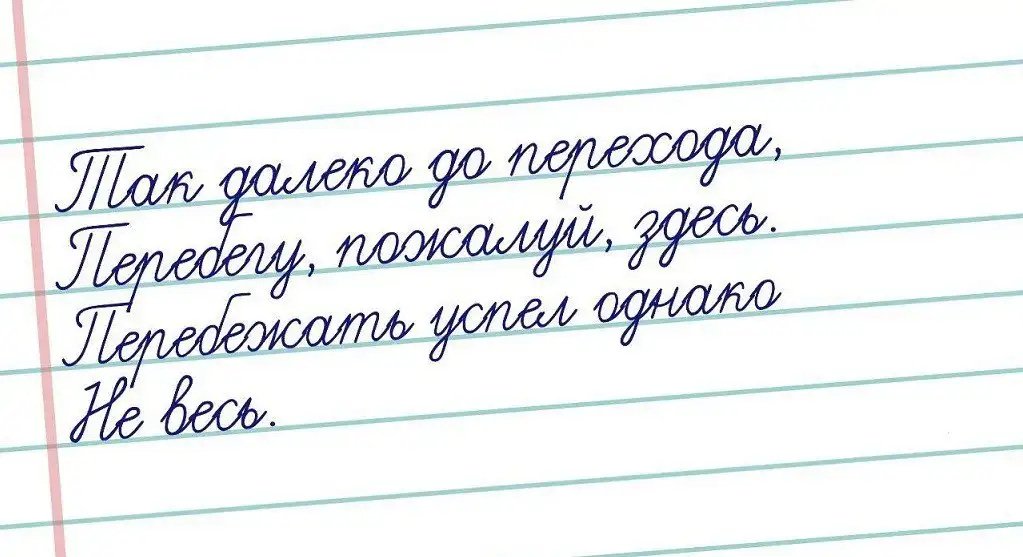 Так далеко до перехода,
Перебегу, пожалуй, здесь.
Перебежать успел однако
Не весь.